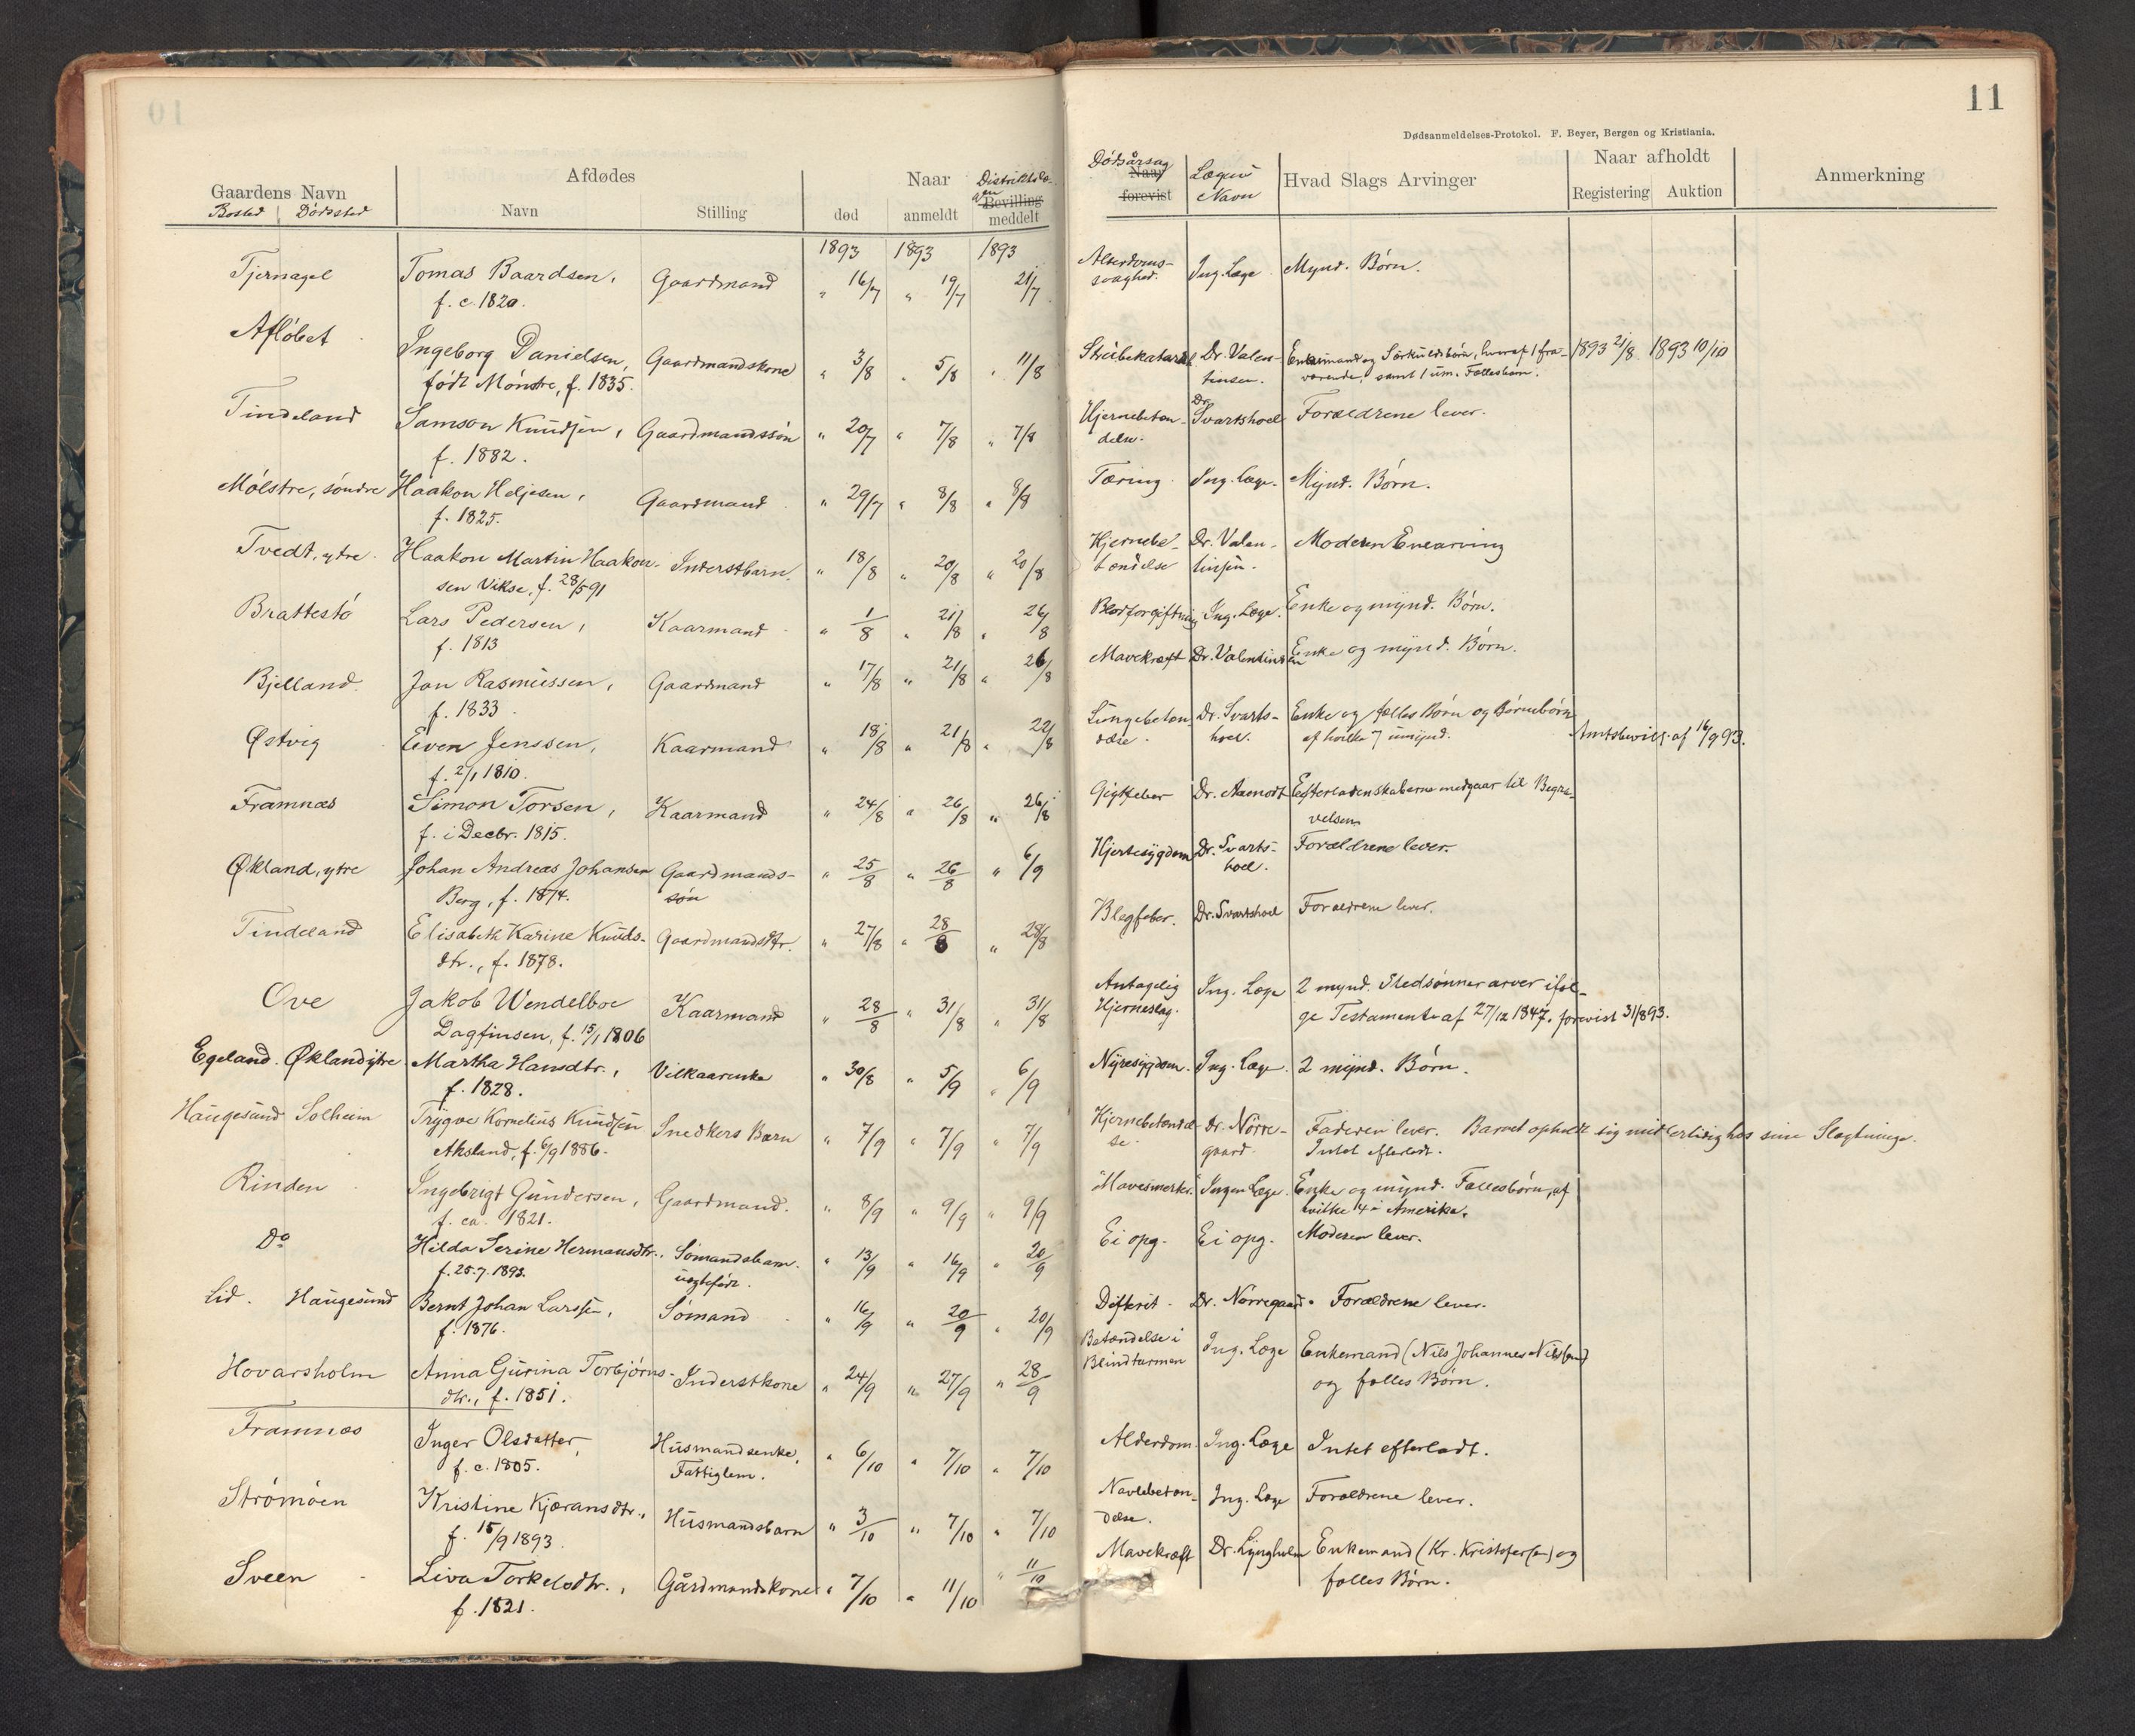 11
Dødsanmeldelses-Protokol. F. Beyer, Bergen og Kristiania.
Gaardens Navn
Bosted Dødssted
Afdødes
Navn
Stilling
Naar
død
anmeldt
Bevilling
meddelt
Dødsårsag
Naar
forevist
Lægens
Navn
Hvad Slags Arvinger
Naar afholdt
Registering
Auktion
Anmerkning
1893 1893 1893
Tjernagel Tomas Baardsen, Gaardmand " 16/7 " 19/7 21/7 Alderdoms- Ing. Læge Mynd. Børn.
f. c. 1820. svaghed.
Afløbet Ingeborg Danielsen, Gaardmandskone " 3/8 " 5/8 " 11/8 Dr. Valen- Enkemand og Særkuldsbørn, hvoraf 1 fra- 1893 21/8 1893 10/10
født Mønstre, f. 1835. tinsen. værende, samt 1 um. Fællesbarn.
Tindeland Samson Knudsen, Gaardmandssøn " 20/7 " 7/8 " 7/8 Hjernebetæn- Dr. Svartshoel Forældrene lever.
f. 1882. delse.
Mølstre, søndre Haakon Heljesen, Gaardmand " 29/7 " 8/8 " 8/8 Tæring Ing. Læge. Mynd. Børn.
f. 1825.
Tvedt, ytre. Haakon Martin Haakon- Inderstbarn. " 18/8 " 20/8 " 20/8 Hjernebe- Dr. Valen- Moderen Enearving
sen Vikse, f. 28/5 91 tændelse tinsen.
Brattestø Lars Pedersen, Kaarmand " 1/8 " 21/8 " 26/8 Blodforgiftning Ing. Læge. Enke og mynd. Børn.
f. 1813
Bjelland. Jon Rasmussen, Gaardmand " 17/8 " 21/8 " 26/8 Mavekræft Dr. Valentinsen Enke og mynd. Børn.
f. 1833.
Østvig Even Jenssen, Kaarmand " 18/8 " 21/8 " 22/8 Lungebetæn- Dr. Svarts- Enke og fælles Børn og Børnebørn
f. 2/1 1810. delse. hoel. af hvilke 7 umynd. Amtsbevilg. af 16/9 93.
Framnæs Simon Torsen, Kaarmand " 24/8 " 26/8 " 26/8 Gigtfeber Dr. Aamodt Efterladenskaberne medgaar til Begra-
f. i Decbr. 1815. velsen
Økland, ytre Johan Andreas Johansen Gaardmands- " 25/8 " 26/8 " 6/9 Hjertesygdom Dr. Svarts- Forældrene lever.
Berg, f. 1874. søn hoel.
Tindeland Elisabeth Karine Knuds- Gaardmandsdtr. " 27/8 " 28/8 " 28/8 Blegfeber. Dr. Svartshoel Forældrene lever.
dtr., f. 1878.
Ove Jakob Wendelboe Kaarmand " 28/8 " 31/8 " 31/8 Antagelig Ing. Læge 2 mynd. Stedsønner arver iføl-
Dagfinsen, f. 15/1 1806 Hjerneslag. ge Testamente af 27/12 1847. forevist 31/8 93.
Egeland. Økland ytre Martha Hansdtr., Vilkaarenke " 30/8 " 5/9 " 6/9 Nyresygdom. Ing. Læge. 2 mynd. Børn.
f. 1828.
Haugesund Solheim Trygve Kornelius Knudsen Snedkers Barn " 7/9 " 7/9 " 7/9 Hjernebetændel- Dr. Nørre- Faderen lever. Barnet opholdt sig midlertidig hos sine Slægtninge.
Aksland, f. 6/9 1886. se. gaard. Intet efterladt.
Rinden Ingebrigt Gundersen, Gaardmand. " 8/9 " 9/9 " 9/9 Mavesmerter. Ingen Læge. Enke og mynd. Fællesbørn, af
f. ca. 1821. hvilke 4 i Amerika.
Do Hilda Serine Hermansdtr., Sømandsbarn. " 13/9 " 16/9 20/9 Ei opg. Ei opg. Moderen lever.
f. 25.7.1893. uægtefødt.
Lid. Haugesund Bernt Johan Larssen, Sømand " 16/9 " 20/9 " 20/9 Difterit. Dr. Nørregaard. Forældrene lever.
f. 1876.
Hovarsholm Anna Gurina Torbjørns- Inderstkone " 24/9 " 27/9 " 28/9 Betændelse i Ing. Læge Enkemand (Nils Johannes Nilssen)
dtr., f. 1851. Blindtarmen og fælles Børn.
Framnæs Inger Olsdatter, Husmandsenke, " 6/10 " 7/10 " 7/10 Alderdom. Ing. Læge Intet efterladt.
f. c. 1805. Fattiglem.
Strømøen Kristine Kjæransdtr., Husmandsbarn " 3/10 " 7/10 " 7/10 Navlebetæn- Ing. Læge Forældrene lever.
f. 15/9 1893. delse.
Sveen Liva Torkelsdtr., Gårdmandskone " 7/10 " 11/10 " 11/10 Mavekræft Dr. Lyngholm Enkemand (Kr. Kristofersen) og
f. 1821. fælles Børn.